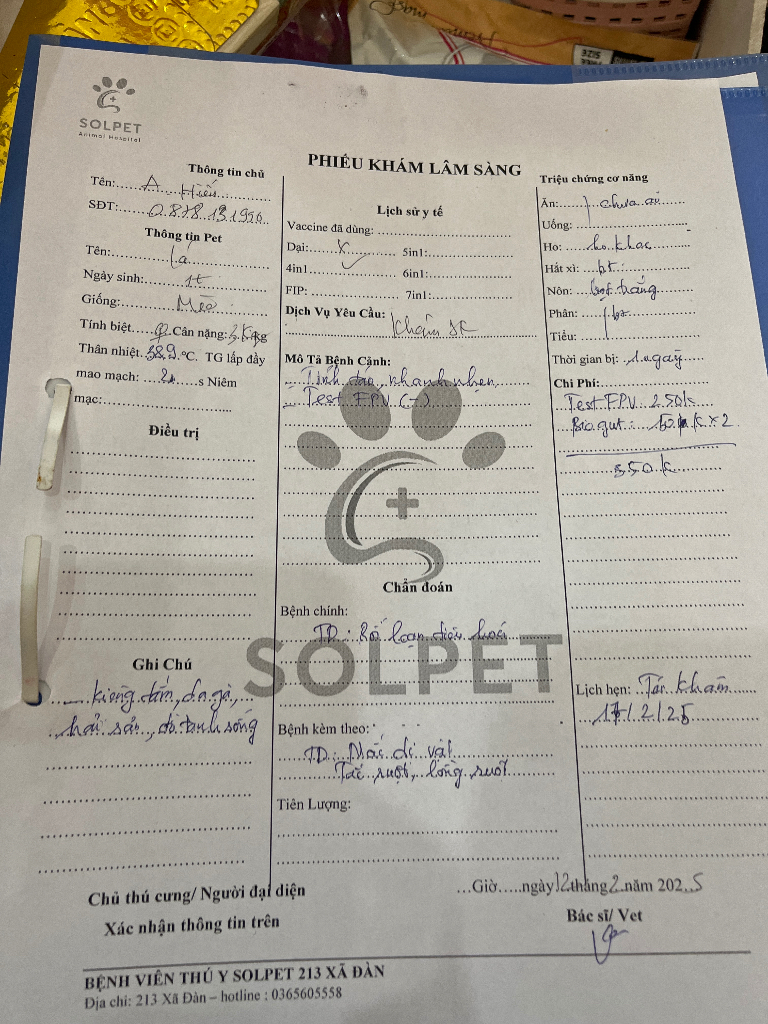 SOLPET
Animal Hospital
PHIẾU KHÁM LÂM SÀNG
Thông tin chủ
Tên: A Hiếu
SĐT: 0.878.13.1996
Thông tin Pet
Tên: Lá
Ngày sinh: 1t
Giống: Mèo
Tính biệt ♀ Cân nặng: 3 Kg kg
Thân nhiệt 38.9 °C. TG lấp đầy
mao mạch: 2 s Niêm
mạc:
Điều trị
Ghi Chú
_ kiêng dấm, da gà,
hải sản, đồ tanh sống
Lịch sử y tế
Vaccine đã dùng:
Dại: x 5in1:
4in1 ✓ 6in1:
FIP: 7in1:
Dịch Vụ Yêu Cầu: Khám SK
Mô Tả Bệnh Cảnh:
_ Tỉnh táo, nhanh nhẹn
_ Test FPV (-)
SOLPET
Chẩn đoán
Bệnh chính:
TD: Rối loạn tiêu hoá
Bệnh kèm theo:
TD: Mắc dị vật
Tắc ruột, lồng ruột
Tiên Lượng:
Triệu chứng cơ năng
Ăn: chưa ăn
Uống:
Ho: ho khạc
Hắt xì: bt
Nôn: bọt trắng
Phân: bt
Tiểu:
Thời gian bị: 1 ngày
Chi Phí:
Test FPV 250k
Bio gut: 50 k x 2
350 k
Lịch hẹn: Tái khám
/ 2 / 25
Chủ thú cưng/ Người đại diện
Xác nhận thông tin trên
...Giờ.....ngày 12 tháng 2 năm 2025
Bác sĩ/ Vet
BỆNH VIỆN THÚ Y SOLPET 213 XÃ ĐÀN
Địa chỉ: 213 Xã Đàn – hotline : 0365605558